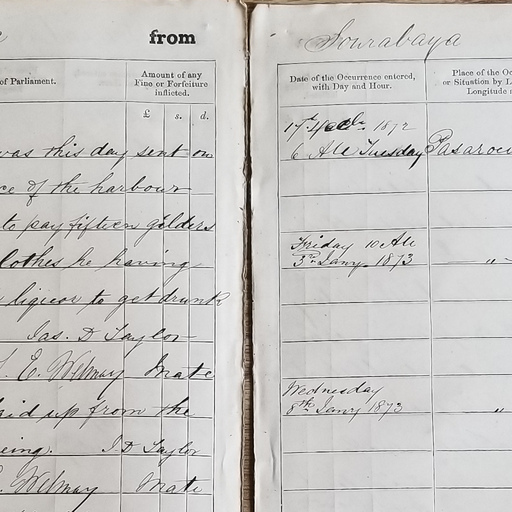 from
of Parliament.
Amount of any
Fine or Forfeiture
inflicted.
£ s. d.
was this day sent on
ce of the harbour
to pay fifteen gilders
lothes he having
liquor to get drunk
Jas. D Taylor
E. Welmay Mate
aid up from the
eing. J D Taylor
Welmay Mate
Sourabaya
Date of the Occurrence entered,
with Day and Hour.
Place of the Oc
or Situation by L
Longitude
1872
6 AM Tuesday Pasarou
Friday 10 AM
3rd Jany 1873 — " —
Wednesday
8th Jany 1873 "